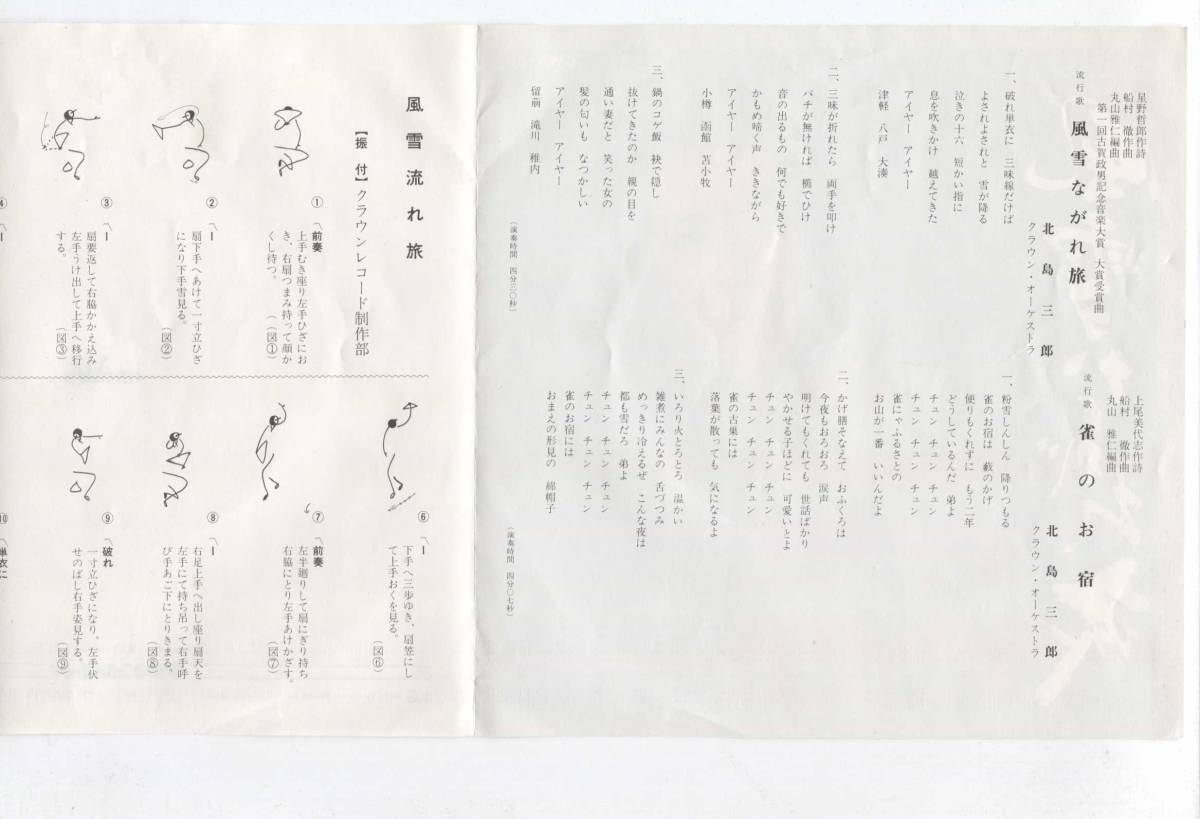 星野哲郎作詩
船村 徹作曲
丸山雅仁編曲
第一回古賀政男記念音楽大賞 大賞受賞曲
流行歌 風雪ながれ旅
北島三郎
クラウン・オーケストラ
一、破れ単衣に 三味線だけば
よされよされと 雪が降る
泣きの十六 短かい指に
息を吹きかけ 越えてきた
アイヤー アイヤー
津軽 八戸 大湊
二、三味が折れたら 両手を叩け
バチが無ければ 櫛でひけ
音の出るもの 何でも好きで
かもめ啼く声 ききながら
アイヤー アイヤー
小樽 函館 苫小牧
三、鍋のコゲ飯 袂で隠し
抜けてきたのか 親の目を
通い妻だと 笑った女の
髪の匂いも なつかしい
アイヤー アイヤー
留萠 滝川 稚内
(演奏時間 四分三〇秒)
上尾美代志作詩
船村 徹作曲
丸山 雅仁編曲
流行歌 雀のお宿
北島三郎
クラウン・オーケストラ
一、粉雪しんしん 降りつもる
雀のお宿は 藪のかげ
便りもくれずに もう二年
どうしているんだ 弟よ
チュン チュン チュン
チュン チュン チュン
雀にゃふるさとの
お山が一番 いいんだよ
二、かげ膳そなえて おふくろは
今夜もおろおろ 涙声
明けてもくれても 世話ばかり
やかせる子ほどに 可愛いとよ
チュン チュン チュン
チュン チュン チュン
雀の古巣には
落葉が散っても 気になるよ
三、いろり火とろとろ 温かい
雑煮にみんなの 舌づつみ
めっきり冷えるぜ こんな夜は
都も雪だろ 弟よ
チュン チュン チュン
チュン チュン チュン
雀のお宿には
おまえの形見の 綿帽子
(演奏時間 四分〇七秒)
風雪流れ旅
【振付】クラウンレコード制作部
①
前奏
上手むき座り左手ひざにお
き、右扇つまみ持って顔か
くし待つ。
(図①)
②
〽ー
扇下手へあけて一寸立ひざ
になり下手雪見る。
(図②)
③
〽ー
扇要返して右脇かかえ込み
左手うけ出して上手へ移行
する。
(図③)
④
〽ー
⑥
〽ー
下手へ三歩ゆき、扇笠にし
て上手おくを見る。
(図⑥)
⑦
〽前奏
左半廻りして扇にぎり持ち
右脇にとり左手あけかざす。
(図⑦)
⑧
〽ー
右足上手へ出し座り扇天を
左手にて持ち吊って右手呼
び手あご下にとりきまる。
(図⑧)
⑨
〽破れ
一寸立ひざになり、左手伏
せのばし右手姿見する。
(図⑨)
⑩
〽単衣に